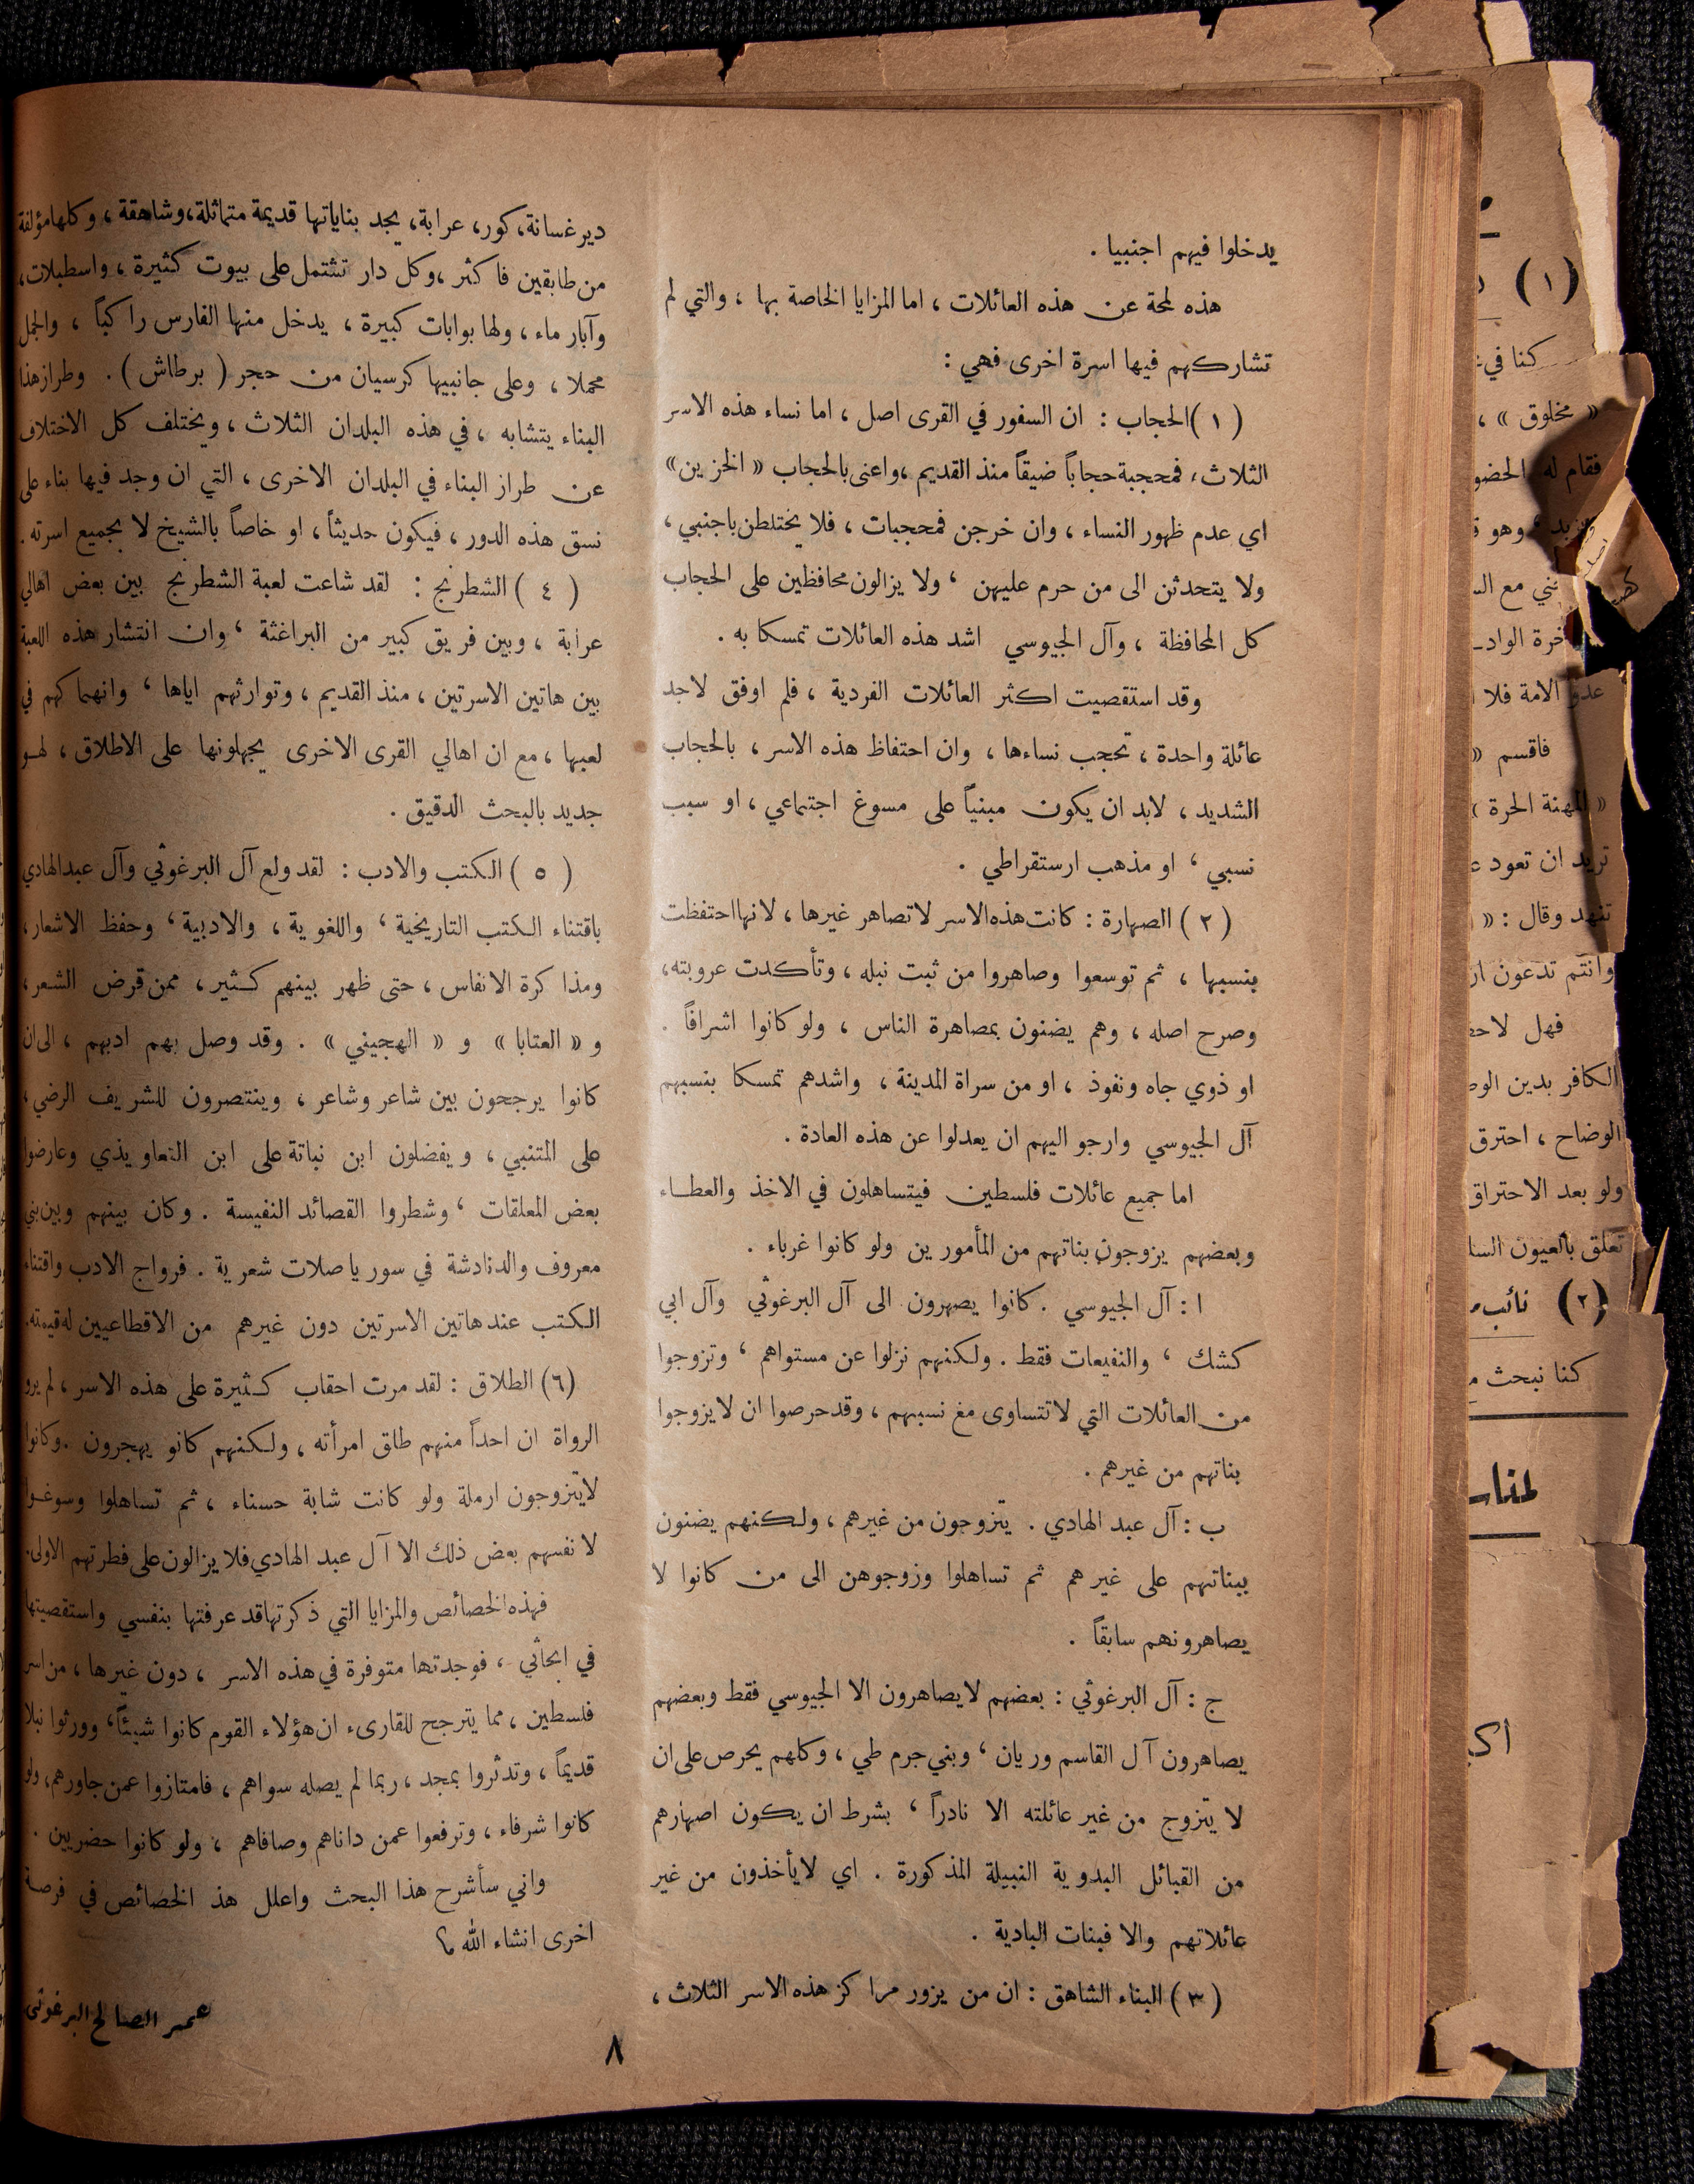 يدخلوا فيهم اجنبيا .
هذه لمحة عن هذه العائلات ، اما المزايا الخاصة بها ، والتي لم
تشاركهم فيها اسرة اخرى فهي :
( ١ ) الحجاب : ان السفور في القرى اصل ، اما نساء هذه الاسر
الثلاث ، فمحجبة حجاباً ضيقاً منذ القديم ، واعنى بالحجاب « الخزين »
اي عدم ظهور النساء ، وان خرجن فمحجبات ، فلا يختلطن باجنبي ،
ولا يتحدثن الى من حرم عليهن ، ولا يزالون محافظين على الحجاب
كل المحافظة ، وآل الجيوسي اشد هذه العائلات تمسكا به .
وقد استقصيت اكثر العائلات الفردية ، فلم اوفق لاجد
عائلة واحدة ، تحجب نساءها ، وان احتفاظ هذه الاسر ، بالحجاب
الشديد ، لابد ان يكون مبنياً على مسوغ اجتماعي ، او سبب
نسبي ، او مذهب ارستقراطي .
( ٢ ) الصهارة : كانت هذه الاسر لا تصاهر غيرها ، لانها احتفظت
بنسبها ، ثم توسعوا وصاهروا من ثبت نبله ، وتأكدت عروبته ،
وصرح اصله ، وهم يضنون بمصاهرة الناس ، ولو كانوا اشرافاً .
او ذوي جاه ونفوذ ، او من سراة المدينة ، واشدهم تمسكا بنسبهم
آل الجيوسي وارجو اليهم ان يعدلوا عن هذه العادة .
اما جميع عائلات فلسطين فيتساهلون في الاخذ والعطاء
وبعضهم يزوجون بناتهم من المأمورين ولو كانوا غرباء .
ا : آل الجيوسي . كانوا يصهرون الى آل البرغوثي وآل ابي
كشك ، والنفيعات فقط . ولكنهم نزلوا عن مستواهم ، وتزوجوا
من العائلات التي لا تتساوى مغ نسبهم ، وقد حرصوا ان لا يزوجوا
بناتهم من غيرهم .
ب : آل عبد الهادي . يتزوجون من غيرهم ، ولكنهم يضنون
ببناتهم على غيرهم ثم تساهلوا وزوجوهن الى من كانوا لا
يصاهرونهم سابقاً .
ج : آل البرغوثي : بعضهم لا يصاهرون الا الجيوسي فقط وبعضهم
يصاهرون آل القاسم وريان ، وبني جرم طي ، وكلهم يحرص على ان
لا يتزوج من غير عائلته الا نادراً ، بشرط ان يكون اصهارهم
من القبائل البدوية النبيلة المذكورة . اي لا يأخذون من غير
عائلاتهم والا فبنات البادية .
( ٣ ) البناء الشاهق : ان من يزور مراكز هذه الاسر الثلاث ،
ديرغسانة ، كور ، عرابة ، يجد بناياتها قديمة متماثلة ، وشاهقة ، وكلها مؤلفة
من طابقين فاكثر ، وكل دار تشتمل على بيوت كثيرة ، واسطبلات ،
وآبار ماء ، ولها بوابات كبيرة ، يدخل منها الفارس راكباً ، والجمل
محملا ، وعلى جانبيها كرسيان من حجر ( برطاش ) . وطراز هذا
البناء يتشابه ، في هذه البلدان الثلاث ، ويختلف كل الاختلاف
عن طراز البناء في البلدان الاخرى ، التي ان وجد فيها بناء على
نسق هذه الدور ، فيكون حديثاً ، او خاصاً بالشيخ لا بجميع اسرته .
( ٤ ) الشطرنج : لقد شاعت لعبة الشطرنج بين بعض اهالي
عرابة ، وبين فريق كبير من البراغثة ، وان انتشار هذه اللعبة
بين هاتين الاسرتين ، منذ القديم ، وتوارثهم اياها ، وانهماكهم في
لعبها ، مع ان اهالي القرى الاخرى يجهلونها على الاطلاق ، لهو
جديد بالبحث الدقيق .
( ٥ ) الكتب والادب : لقد ولع آل البرغوثي وآل عبد الهادي
باقتناء الكتب التاريخية ، واللغوية ، والادبية ، وحفظ الاشعار ،
ومذاكرة الانفاس ، حتى ظهر بينهم كثير ، ممن قرض الشعر ،
و « العتابا » و « الهجيني » . وقد وصل بهم ادبهم ، الى ان
كانوا يرجحون بين شاعر وشاعر ، وينتصرون للشريف الرضي ،
على المتنبي ، ويفضلون ابن نباتة على ابن التعاويذي وعارضوا
بعض المعلقات ، وشطروا القصائد النفيسة . وكان بينهم وبين بني
معروف والدنادشة في سوريا صلات شعرية . فرواج الادب واقتناء
الكتب عند هاتين الاسرتين دون غيرهم من الاقطاعيين له قيمته.
(٦) الطلاق : لقد مرت احقاب كثيرة على هذه الاسر ، لم يرو
الرواة ان احداً منهم طلق امرأته ، ولكنهم كانو يهجرون . وكانوا
لا يتزوجون ارملة ولو كانت شابة حسناء ، ثم تساهلوا وسوغوا
لانفسهم بعض ذلك الا آل عبد الهادي فلا يزالون على فطرتهم الاولى.
فهذه الخصائص والمزايا التي ذكرتها قد عرفتها بنفسي واستقصيتها
في ابحاثي ، فوجدتها متوفرة في هذه الاسر ، دون غيرها ، من اسر
فلسطين ، مما يترجح للقارىء ان هؤلاء القوم كانوا شيئاً ، وورثوا نبلا
قديماً ، وتدثروا بمجد ، ربما لم يصله سواهم ، فامتازوا عمن جاورهم ، ولو
كانوا شرفاء ، وترفعوا عمن داناهم وصافاهم ، ولو كانوا حضريين .
واني سأشرح هذا البحث واعلل هذ الخصائص في فرصة
اخرى انشاء الله
عمر الصالح البرغوثي
٨
(١)
كنا في
« مخلوق » ،
فقام له الحضو
وهو
ني مع ال
عدو الامة فلا
فاقسم «
« المهنة الحرة »
تريد ان تعود
تنهد وقال : «
وانتم تدعون ان
فهل لاح
الكافر بدين الو
الوضاح ، احترق
ولو بعد الاحتراق
تعلق بالعيون السا
(٢) نائب
كنا نبحث
لمنا